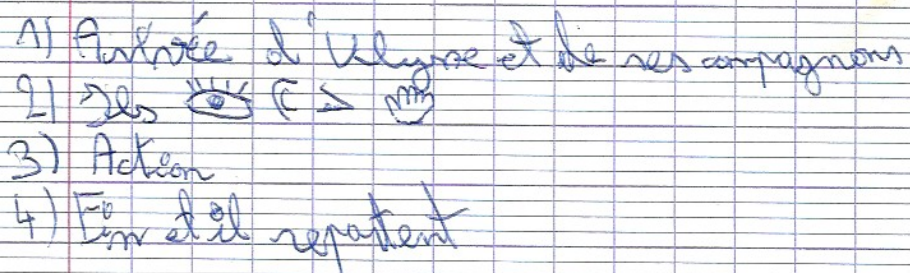 1) Arrivée d'Ulysse et de ses compagnons
2) Ils
3) Action
4) Fin et il repartent